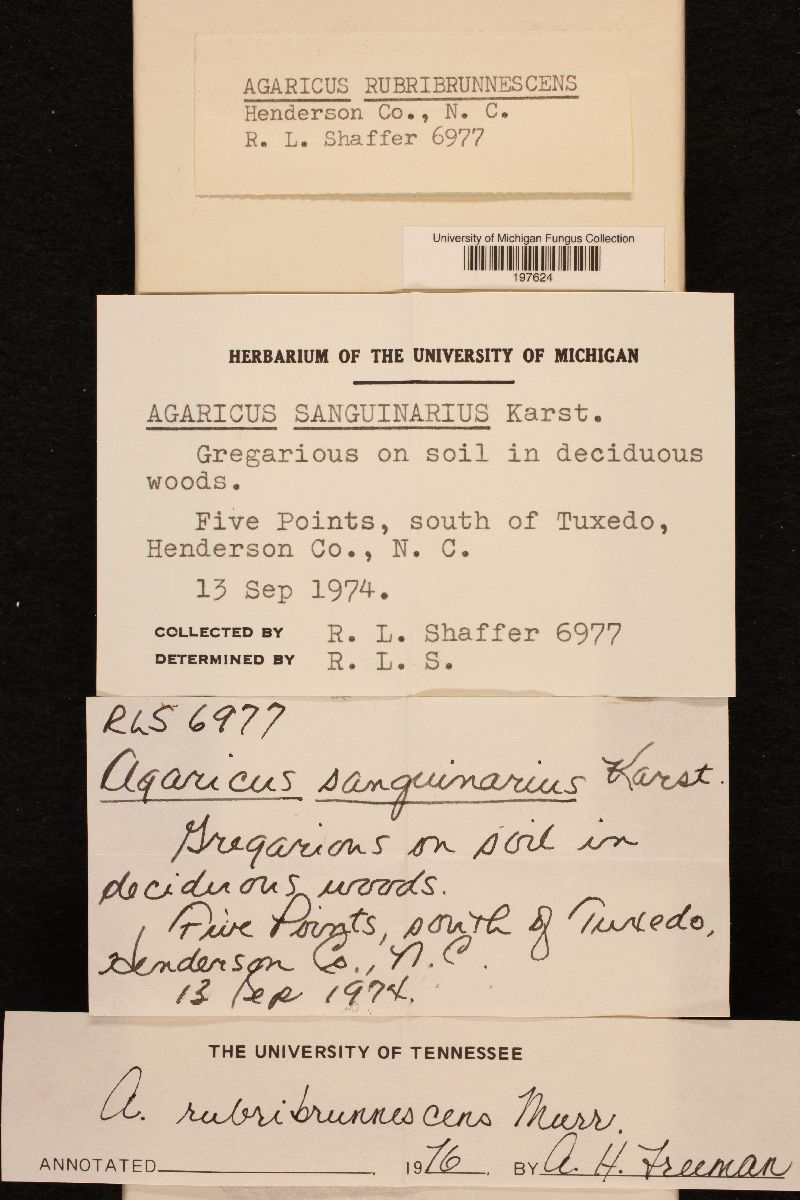 AGARICUS RUBRIBRUNNESCENS
Henderson Co., N. C.
R. L. Shaffer 6977
University of Michigan Fungus Collection
197624
HERBARIUM OF THE UNIVERSITY OF MICHIGAN
AGARICUS SANGUINARIUS Karst.
Gregarious on soil in deciduous
woods.
Five Points, south of Tuxedo,
Henderson Co., N. C.
13 Sep 1974.
COLLECTED BY R. L. Shaffer 6977
DETERMINED BY R. L. S.
RLS 6977
Agaricus sanguinarius Karst.
Gregarious on soil in
deciduous woods.
Five Points, south of Tuxedo,
Henderson Co., N.C.
13 Sep 1974.
THE UNIVERSITY OF TENNESSEE
A. rubribrunnescens Murr.
ANNOTATED . 1976. BY A. H. Freeman